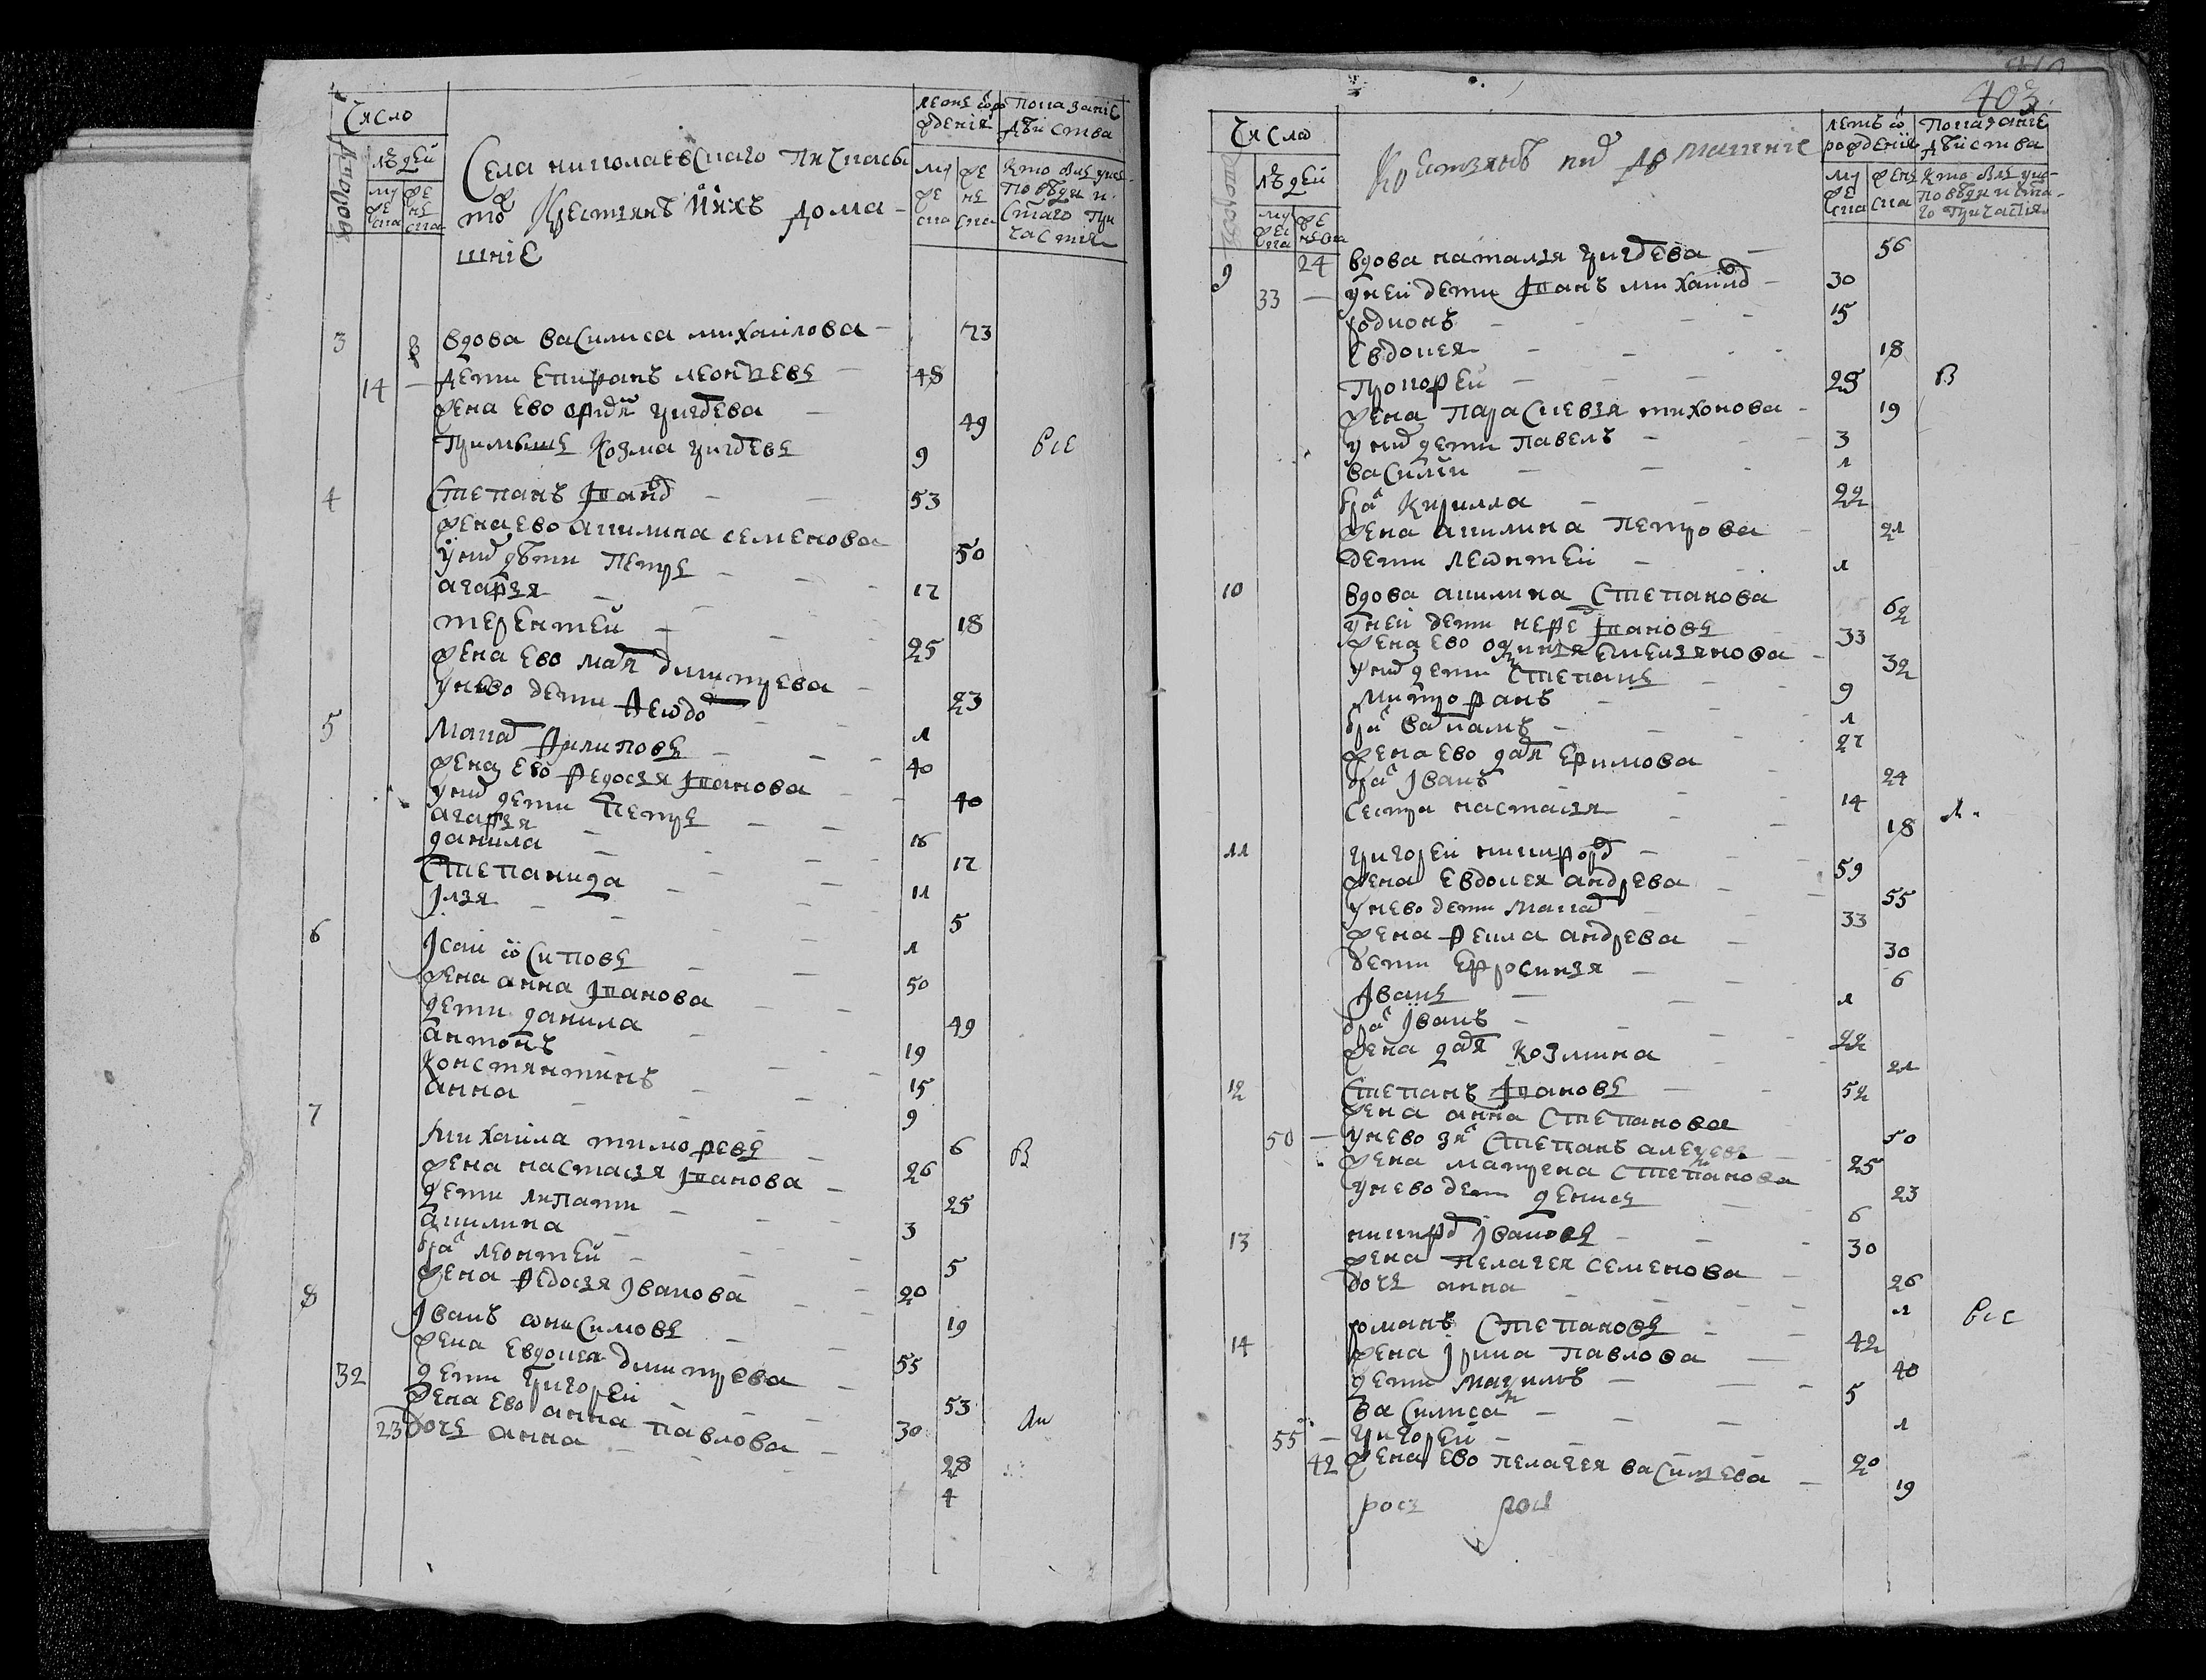 Число
Дворовъ
людей
мужеска
женска
Села николаевскаго
то Крестянъ ихъ дома-
шніе
летъ ѿ рождения
мужеска
женска
Показаніе действа
Кто былъ у исповѣди и стаго причастия
3 8 вдова василиса михаилова - 73
14 - дети епифанъ леонтевъ - 48
жена ево григорева - 49
приимышъ козма григоревъ 9 все
4 степанъ ивано 53
жена ево акилина семенова 50
у них дѣти петръ 17
агафья 18
терентей 25
жена ево мая димитрева 23
у нево дети федо 1
5 мака филиповъ 40
жена ево федося иванова 40
у них дети петръ 16
агафья 17
данила 11
степанида 5
илья 1
6 исаи ѡсиповъ 50
жена анна иванова 49
дети данила 19
антонъ 15
констянтинъ 9
анна 6
7 михаила тимофевъ 26 В
жена настася иванова 25
дети липати 3
акилина 5
бра леонтей 20
жена федося иванова 19
8 иванъ ѡнисимовъ 55
жена евдокея димитрева 53
32 дети григорей 30
жена ево анна павлова 28
23 дочь анна 4
403
Число
Дворовъ
людей
мужеска
женска
Крестянъ их домашние
летъ ѿ рождения
мужеска
женска
Показание действа
Кто былъ у исповѣди и стаго причастия
9 24 вдова наталья григорева 56
33 - у неи дети иванъ михаило 30
родионъ 15
евдокея 18
прокофей 25 В
жена парасковья тихонова 19
у них дети павелъ 3
василий 1
бра кирилла 22
жена акилина петрова 21
дети леѡнтей 1
10 вдова акилина степанова 62
у неи дети нефе ивановъ 33
жена ево емельянова 32
у них дети степанъ 9
митрофанъ 1
бра 27
жена ево дая ефимова 24
бра иванъ 14
сестра настасья 18
11 григорей никифоро 59
жена евдокея андрева 55
у нево дети мака 33
жена фекла андрева 30
дети ефросинья 6
иванъ 1
бра иванъ 22
жена дая козмина 21
12 степанъ ивановъ 52
жена анна степанова 50
50 - у нево зя степанъ алексевъ 25
жена матрена степанова 23
у нево дети денисъ 6
13 никифо ивановъ 30
жена пелагея семенова 26
дочь анна 1 все
14 романъ степановъ 42
жена ирина павлова 40
дети макимъ 5
василиса 1
55 - григорей 20
42 жена ево пелагея василева 19